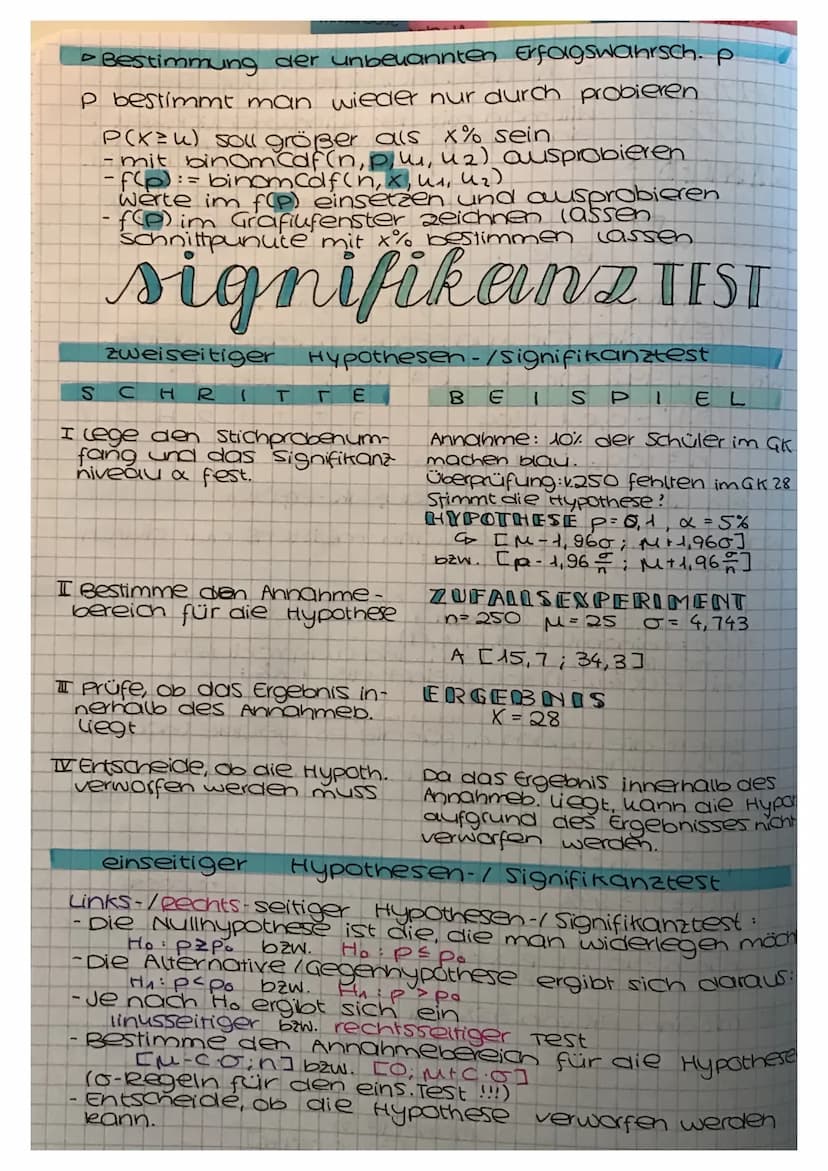 ▹ Bestimmung der unbekannten Erfolgswahrsch. p
p bestimmt man wieder nur durch probieren
P(X≥k) soll größer als x% sein
- mit binomCdf(n,p,k1,k2) ausprobieren
- f(p) := binomCdf(n,x,k1,k2)
Werte im f(p) einsetzen und ausprobieren
- f(p) im Grafikfenster zeichnen lassen
Schnittpunkte mit x% bestimmen lassen
signifikanz TEST
zweiseitiger Hypothesen-/Signifikanztest
SCHRITTE
I Lege den Stichprobenum-
fang und das Signifikanz
niveau α fest.
II Bestimme den Annahme-
bereich für die Hypothese
III Prüfe, ob das Ergebnis in-
nerhalb des Annahmeb.
liegt
IV Entscheide, ob die Hypoth.
verworfen werden muss
BEISPIEL
Annahme: 10% der Schüler im GK
machen blau.
Überprüfung: v.250 fehlten im GK 28
Stimmt die Hypothese?
HYPOTHESE p=0,1, α=5%
↳ [μ-1,96σ; μ+1,96σ]
bzw. [p-1,96 σ/n; μ+1,96 σ/n]
ZUFALLSEXPERIMENT
n=250 μ=25 σ=4,743
A [15,7; 34,3]
ERGEBNIS
X=28
Da das Ergebnis innerhalb des
Annahmeb. liegt, kann die Hypo
aufgrund des Ergebnisses nicht
verworfen werden.
einseitiger Hypothesen-/Signifikanztest
Links-/Rechts-seitiger Hypothesen-/Signifikanztest:
- Die Nullhypothese ist die, die man widerlegen möch
H0: p≥p0 bzw. H0: p≤p0
- Die Alternative/Gegenhypothese ergibt sich daraus:
H1: p<p0 bzw. H1: p>p0
- Je nach H0 ergibt sich ein
linksseitiger bzw. rechtsseitiger Test
- Bestimme den Annahmebereich für die Hypothese
[μ-c·σ;n] bzw. [0; μ+c·σ]
(σ-Regeln für den eins. Test !!!)
- Entscheide, ob die Hypothese verworfen werden
kann.